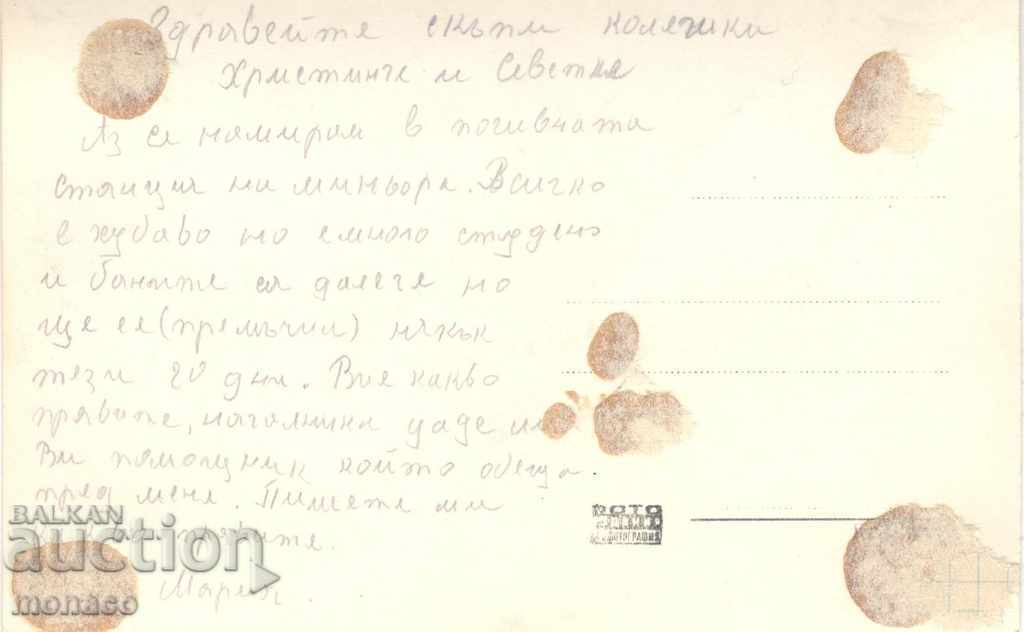 Здравейте скъпи колежки
Христинче и Цветка
Аз се намирам в почивната
станция на миньора. Всичко
е хубаво но е много студено
и баните са далече но
ще се (премъчим) някък
тези 20 дни. Вие какво
правите, началника даде ли
Ви помощник който обеща
пред мене. Пишете ми
правите.
Мария.
ФОТО
BALKAN
auction
monaco